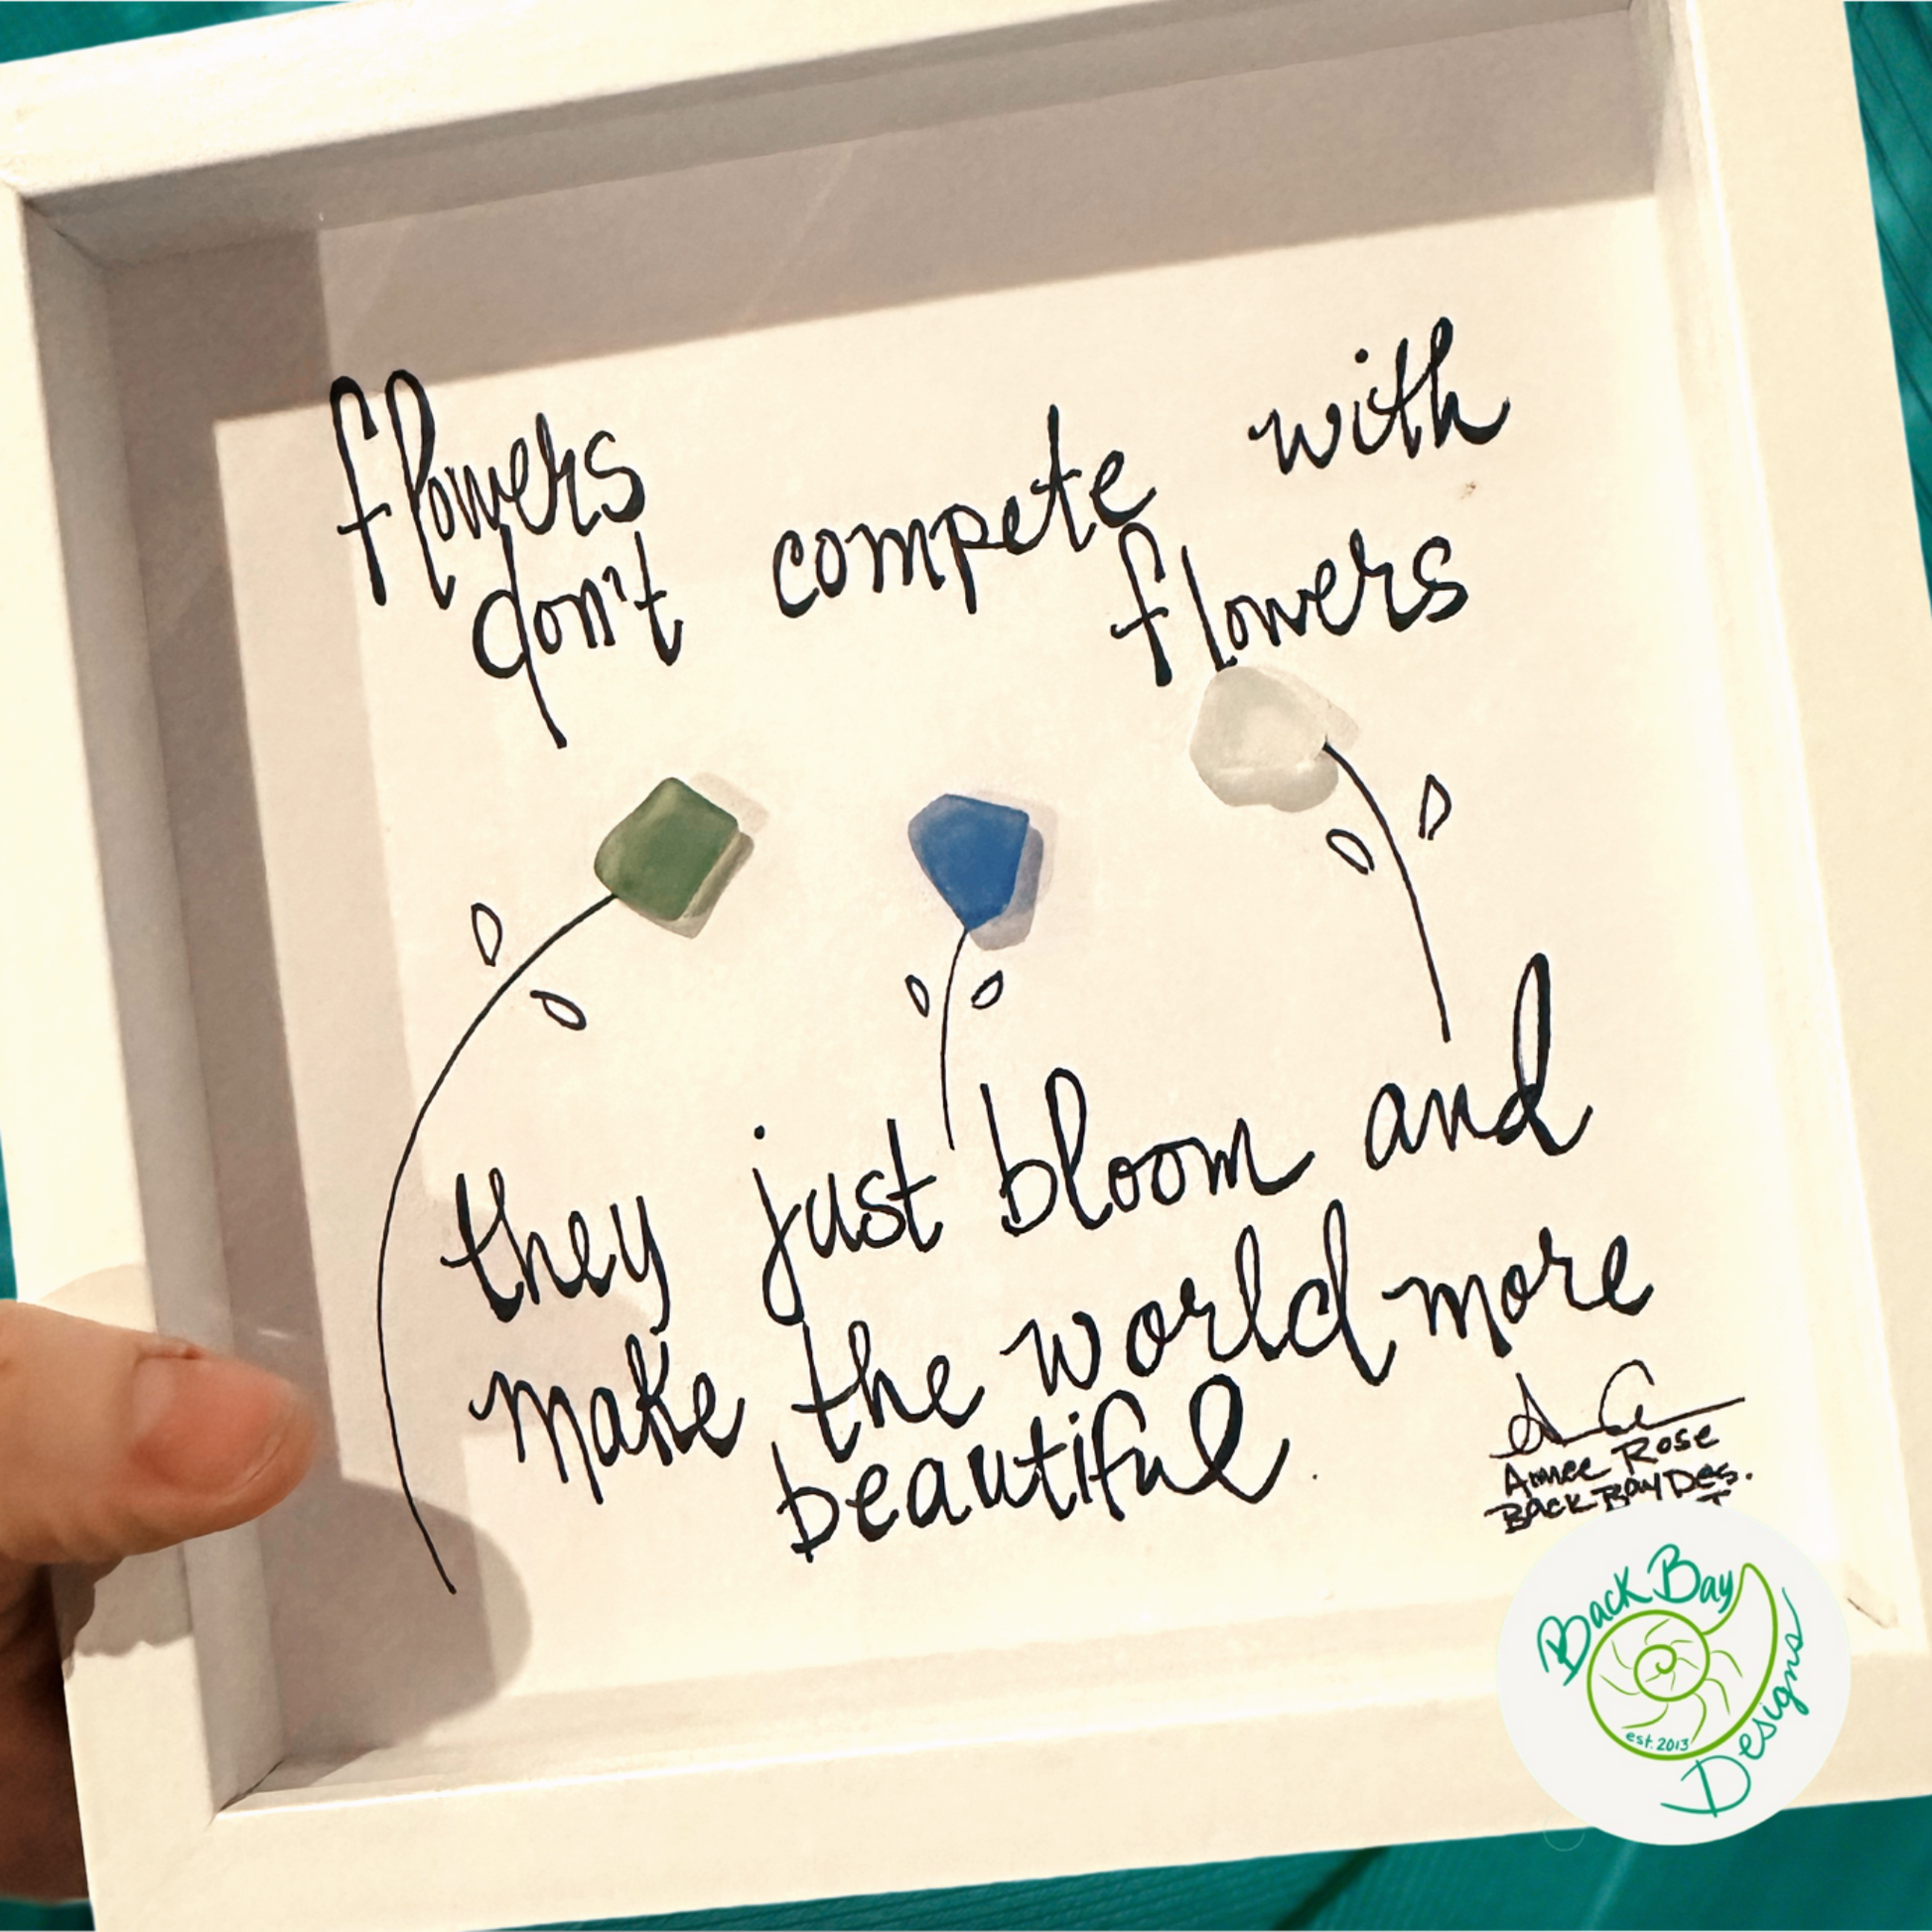 flowers
don't compete with
flowers
they just bloom and
make the world more
beautiful.
Aimee Rose
Back Bay Des.
Back Bay
Designs
est. 2013